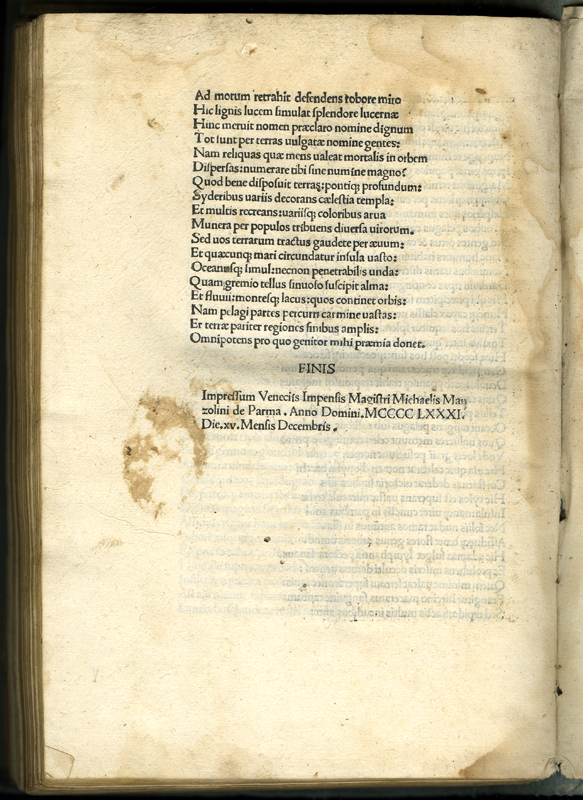 Ad motum retrahit defendens robore miro
Hic lignis lucem simulat splendore lucernæ
Hinc meruit nomen præclaro nomine dignum
Tot sunt per terras uulgatæ nomine gentes:
Nam reliquas quæ mens ualeat mortalis in orbem
Dispersas:numerare tibi sine numine magno?
Quod bene disposuit terras:pontiq; profundum:
Syderibus uariis decorans cælestia templa:
Et multis recreans:uariisq; coloribus arua
Munera per populos tribuens diuersa uirorum.
Sed uos terrarum tractus gaudete per æuum:
Et quæcunq; mari circundatur insula uasto:
Oceanusq; simul:necnon penetrabilis unda:
Quam gremio tellus sinuoso suscipit alma:
Et fluuii:montesq; lacus:quos continet orbis:
Nam pelagi partes percurri carmine uastas:
Et terræ pariter regiones finibus amplis:
Omnipotens pro quo genitor mihi præmia donet.
FINIS
Impressum Veneciis Impensis Magistri Michaelis Man
zolini de Parma . Anno Domini.MCCCC LXXXI.
Die.xv.Mensis Decembris .